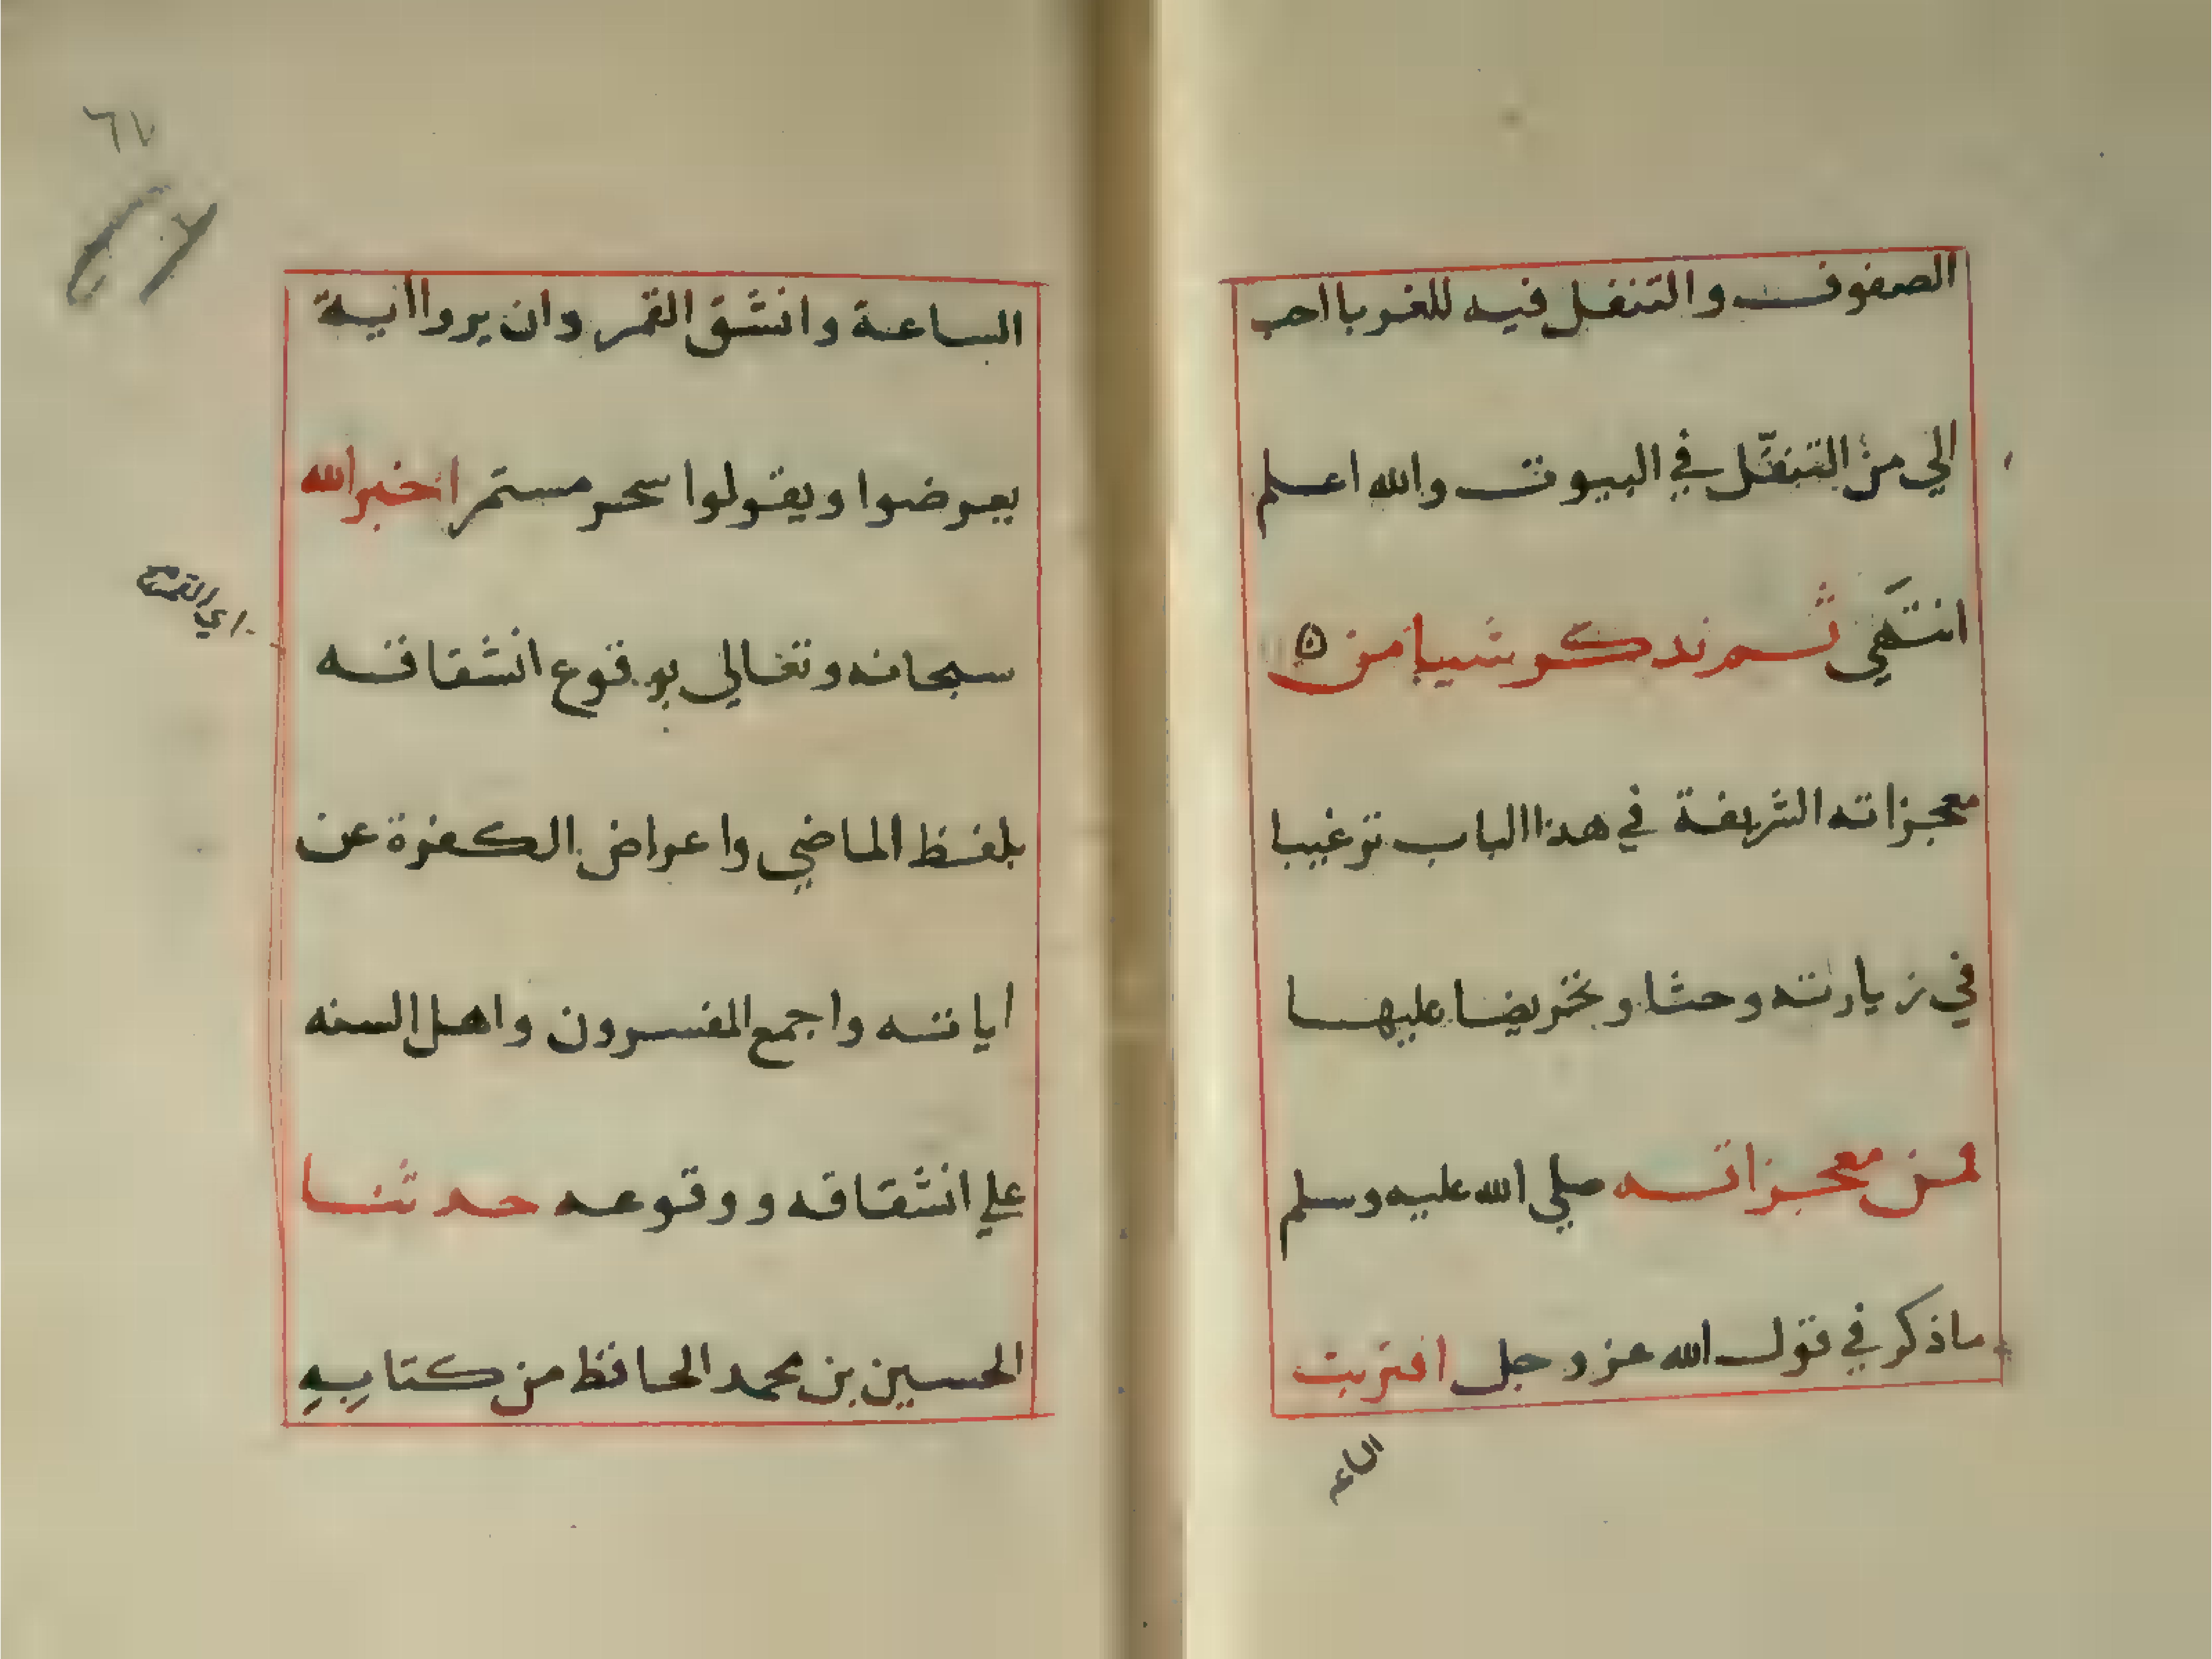 الصفوف والتنفل فيه للغربا احب
الي من التنفل في البيوت والله اعلم
انتهي ثم نذكر شيا من ه
معجزاته الشريفة في هذا الباب ترغيبا
في زيارته وحثا وتحريضا عليها
فمن معجزاته صلي الله عليه وسلم
ما ذكر في قول الله عز وجل اقتربت
الساعة
٦٧
الساعة وانشق القمر وان يروا اية
يعرضوا ويقولوا سحر مستمر اخبر الله
اي القمر
سبحانه وتعالي بوقوع انشقاقه
بلفظ الماضي واعراض الكفرة عن
اياته واجمع المفسرون واهل السنه
علي انشقاقه ووقوعه حدثنا
الحسين بن محمد الحافظ من كتابه